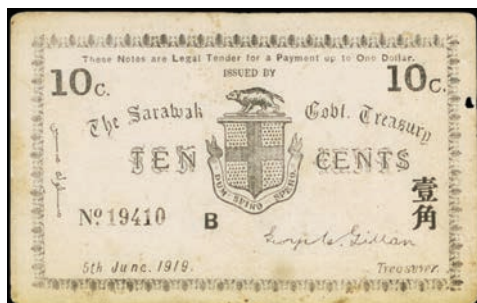 These Notes are Legal Tender for a Payment up to One Dollar.
10c. ISSUED BY 10c.
The Sarawak Govt. Treasury
TEN CENTS
DUM SPIRO SPERO
壹角
No 19410 B
5th June. 1919. Treasurer.